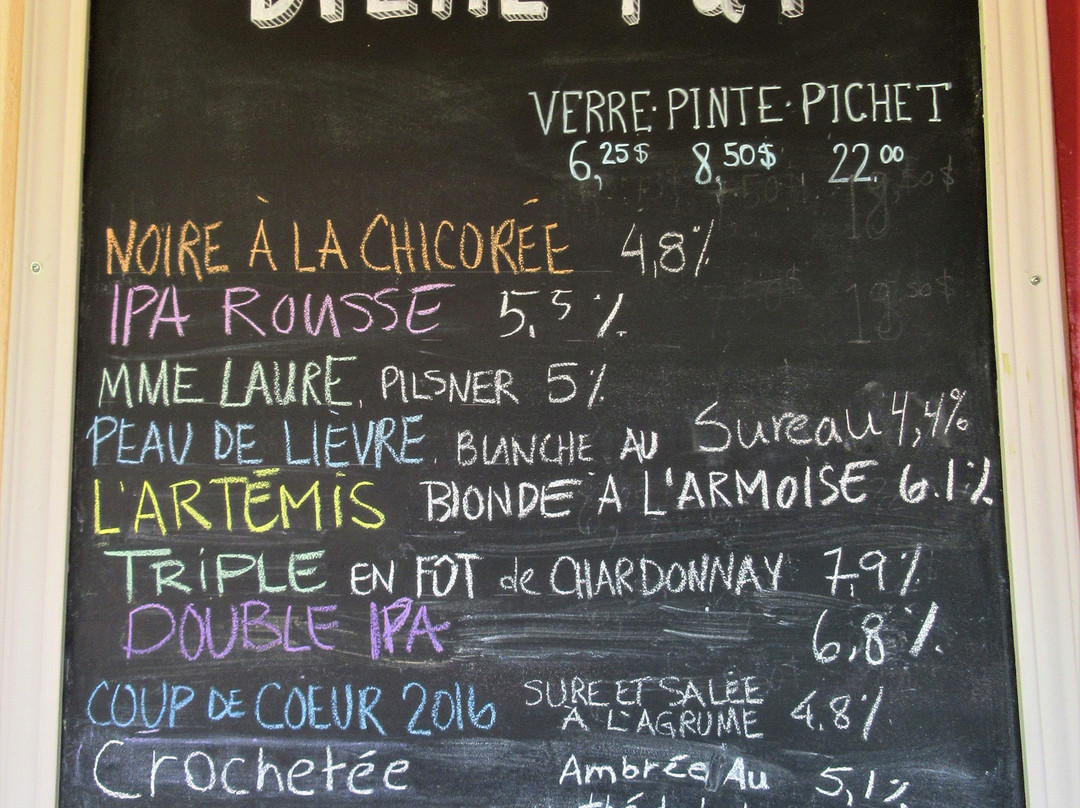 VERRE·PINTE·PICHET
6,25$ 8,50$ 22.00
NOIRE À LA CHICORÉE 4,8%
IPA ROUSSE 5,5%
MME LAURE, PILSNER 5%
PEAU DE LIÈVRE, BLANCHE AU Sureau 4,4%
L'ARTÉMIS BLONDE À L'ARMOISE 6.1%
TRIPLE EN FÛT de CHARDONNAY 7,9%
DOUBLE IPA 6,8%
COUP DE COEUR 2016 SURE ET SALÉE À L'AGRUME 4.8%
Crochetée Ambrée Au 5,1%